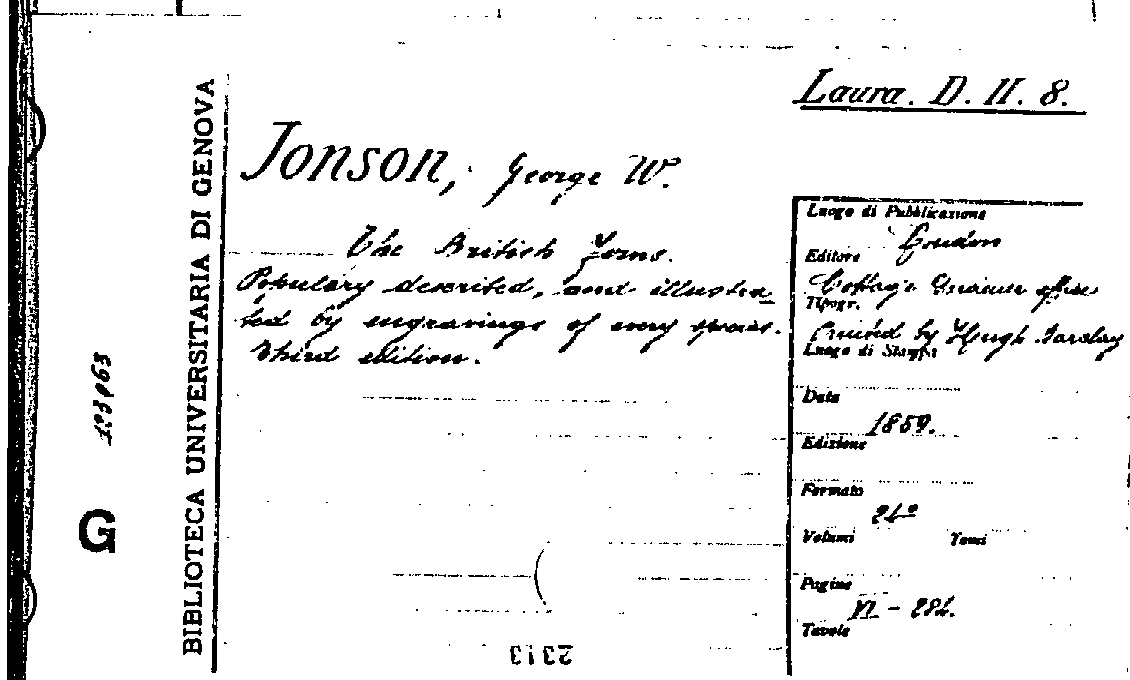 Laura. D. II. 8.
BIBLIOTECA UNIVERSITARIA DI GENOVA
Jonson, George W.
The British ferns.
Populary described, and illustra
ted by engravings of every species.
Third edition.
Luogo di Pubblicazione
London
Editore
Cottage Gardener office
Tipogr.
Printed by Hugh Barclay
Luogo di Stampa
Data
1859.
Edizione
Formato
24°
Volumi Tomi
Pagine
VI - 284.
Tavole
G
2313